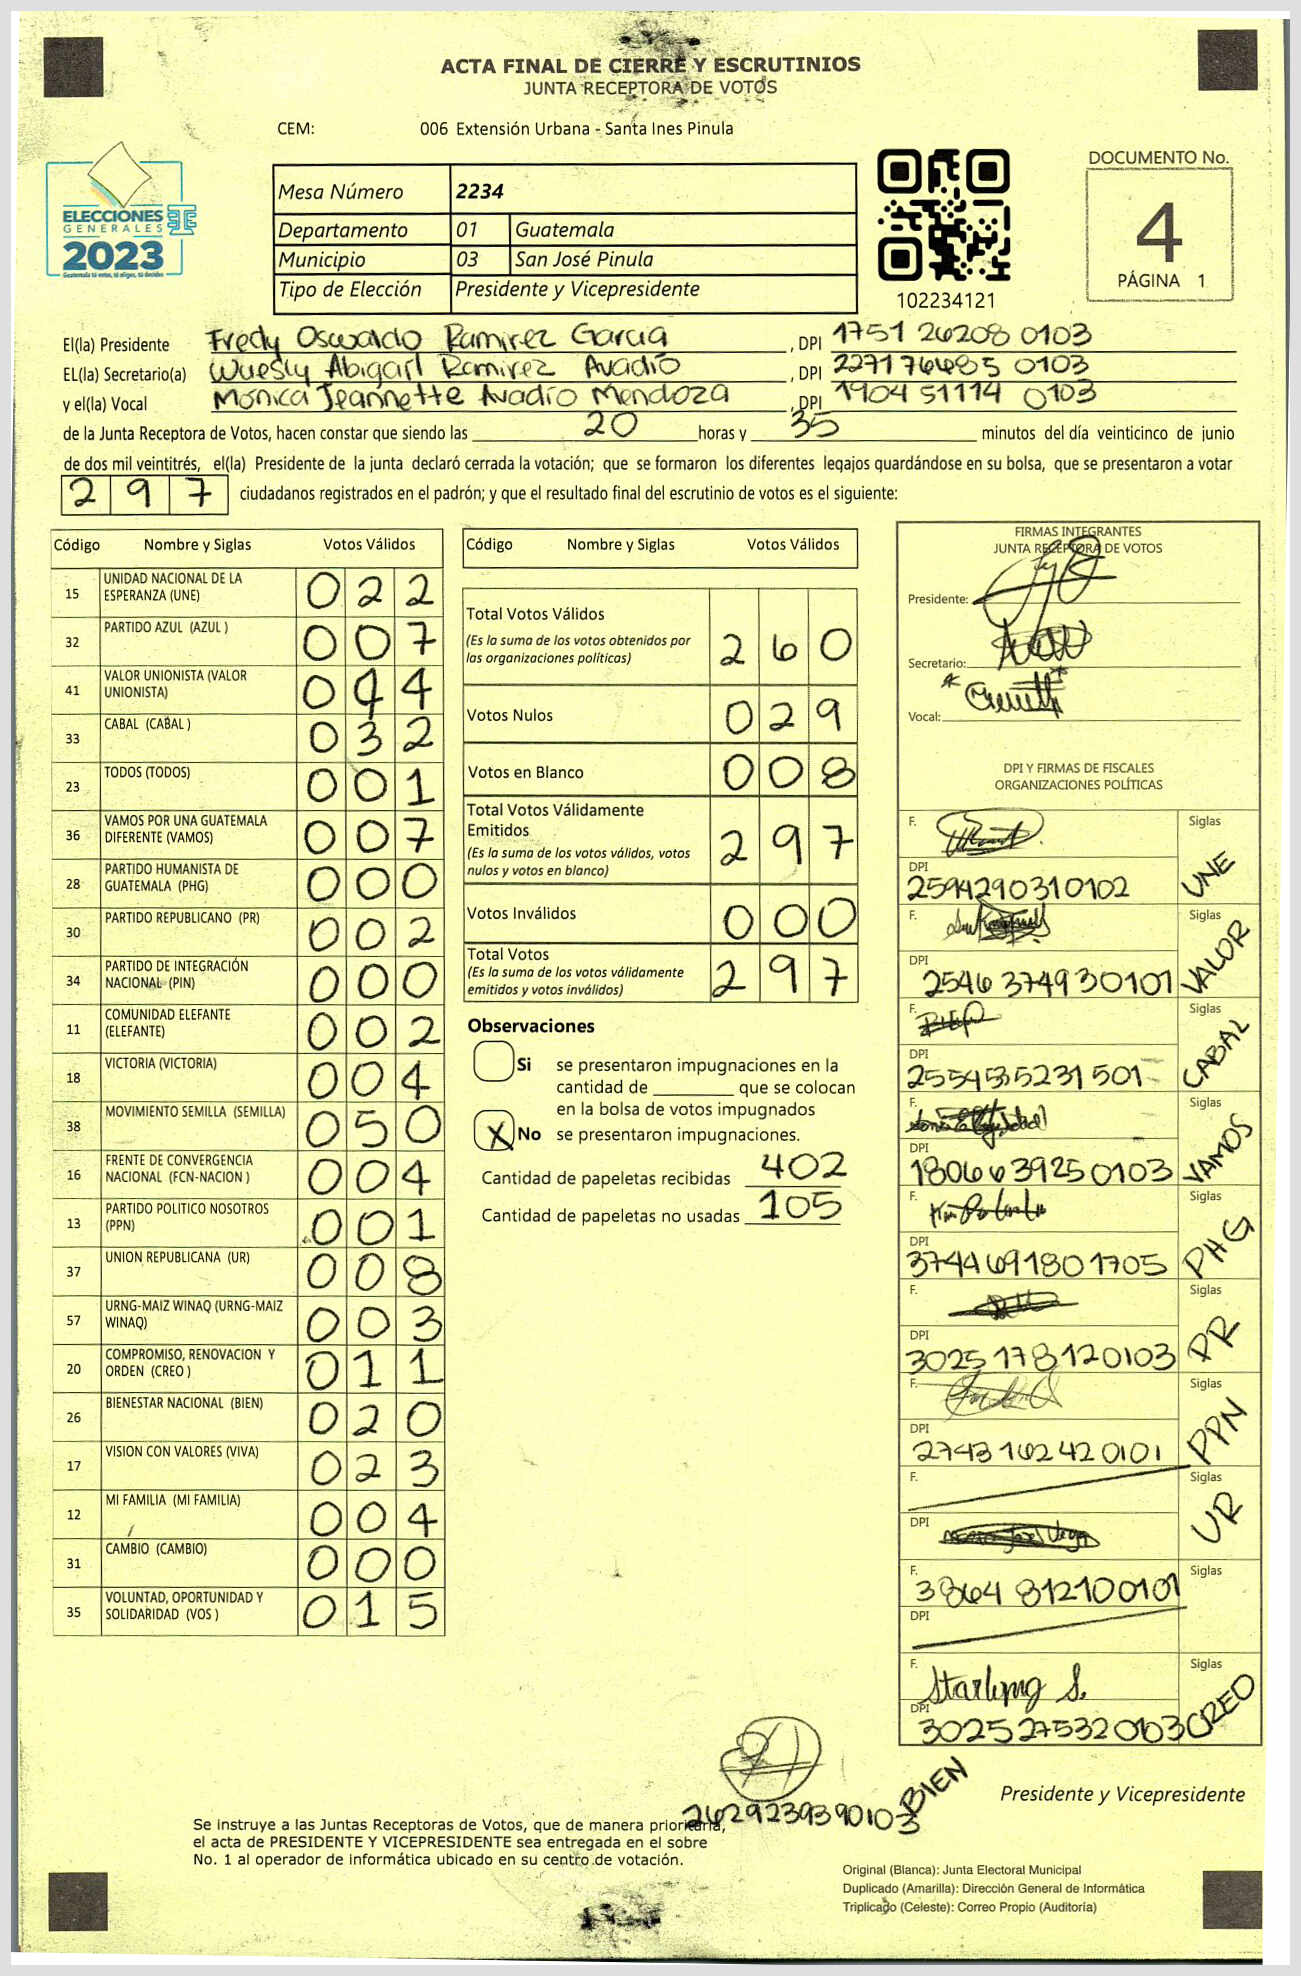 ACTA FINAL DE CIERRE Y ESCRUTINIOS
JUNTA RECEPTORA DE VOTOS
CEM: 006 Extensión Urbana - Santa Ines Pinula
ELECCIONES
GENERALES
2023
Guatemala tú votas, tú eliges, tú decides
Mesa Número 2234
Departamento 01 Guatemala
Municipio 03 San José Pinula
Tipo de Elección Presidente y Vicepresidente
102234121
DOCUMENTO No.
4
PÁGINA 1
El(la) Presidente Fredy Oswaldo Ramirez Garcia, DPI 1751 26208 0103
EL(la) Secretario(a) Wuesly Abigail Ramirez Avadio, DPI 2271 76685 0103
y el(la) Vocal Monica Jeannette Avadío Mendoza, DPI 1904 51114 0103
de la Junta Receptora de Votos, hacen constar que siendo las 20 horas y 35 minutos del día veinticinco de junio
de dos mil veintitrés, el(la) Presidente de la junta declaró cerrada la votación; que se formaron los diferentes legajos guardándose en su bolsa, que se presentaron a votar
297 ciudadanos registrados en el padrón; y que el resultado final del escrutinio de votos es el siguiente:
Código Nombre y Siglas Votos Válidos
15 UNIDAD NACIONAL DE LA ESPERANZA (UNE) 022
32 PARTIDO AZUL (AZUL ) 007
41 VALOR UNIONISTA (VALOR UNIONISTA) 044
33 CABAL (CABAL ) 032
23 TODOS (TODOS) 001
36 VAMOS POR UNA GUATEMALA DIFERENTE (VAMOS) 007
28 PARTIDO HUMANISTA DE GUATEMALA (PHG) 000
30 PARTIDO REPUBLICANO (PR) 002
34 PARTIDO DE INTEGRACIÓN NACIONAL (PIN) 000
11 COMUNIDAD ELEFANTE (ELEFANTE) 002
18 VICTORIA (VICTORIA) 004
38 MOVIMIENTO SEMILLA (SEMILLA) 050
16 FRENTE DE CONVERGENCIA NACIONAL (FCN-NACION ) 004
13 PARTIDO POLITICO NOSOTROS (PPN) 001
37 UNION REPUBLICANA (UR) 008
57 URNG-MAIZ WINAQ (URNG-MAIZ WINAQ) 003
20 COMPROMISO, RENOVACION Y ORDEN (CREO ) 011
26 BIENESTAR NACIONAL (BIEN) 020
17 VISION CON VALORES (VIVA) 023
12 MI FAMILIA (MI FAMILIA) 004
31 CAMBIO (CAMBIO) 000
35 VOLUNTAD, OPORTUNIDAD Y SOLIDARIDAD (VOS ) 015
Código Nombre y Siglas Votos Válidos
Total Votos Válidos
(Es la suma de los votos obtenidos por
las organizaciones políticas) 260
Votos Nulos 029
Votos en Blanco 008
Total Votos Válidamente
Emitidos
(Es la suma de los votos válidos, votos
nulos y votos en blanco) 297
Votos Inválidos 000
Total Votos
(Es la suma de los votos válidamente
emitidos y votos inválidos) 297
Observaciones
Si se presentaron impugnaciones en la
cantidad de ________ que se colocan
en la bolsa de votos impugnados
X No se presentaron impugnaciones.
Cantidad de papeletas recibidas 402
Cantidad de papeletas no usadas 105
FIRMAS INTEGRANTES
JUNTA RECEPTORA DE VOTOS
Presidente:
Secretario:
Vocal:
DPI Y FIRMAS DE FISCALES
ORGANIZACIONES POLÍTICAS
F. Siglas
DPI 2594290310102 UNE
F. Siglas
DPI 2546 37493 0101 VALOR
F. Siglas
DPI 2554535231501 CABAL
F. Siglas
DPI 1806639250103 VAMOS
F. Siglas
DPI 3744691801705 PHG
F. Siglas
DPI 3025178120103 PR
F. Siglas
DPI 2743162420101 PPN
F. Siglas
DPI UR
F. Siglas
3864 812100101
DPI
F. Starlyng S. Siglas
DPI 3025275320103 CREO
2629239390103 BIEN
Presidente y Vicepresidente
Se instruye a las Juntas Receptoras de Votos, que de manera prioritaria,
el acta de PRESIDENTE Y VICEPRESIDENTE sea entregada en el sobre
No. 1 al operador de informática ubicado en su centro de votación.
Original (Blanca): Junta Electoral Municipal
Duplicado (Amarilla): Dirección General de Informática
Triplicado (Celeste): Correo Propio (Auditoría)